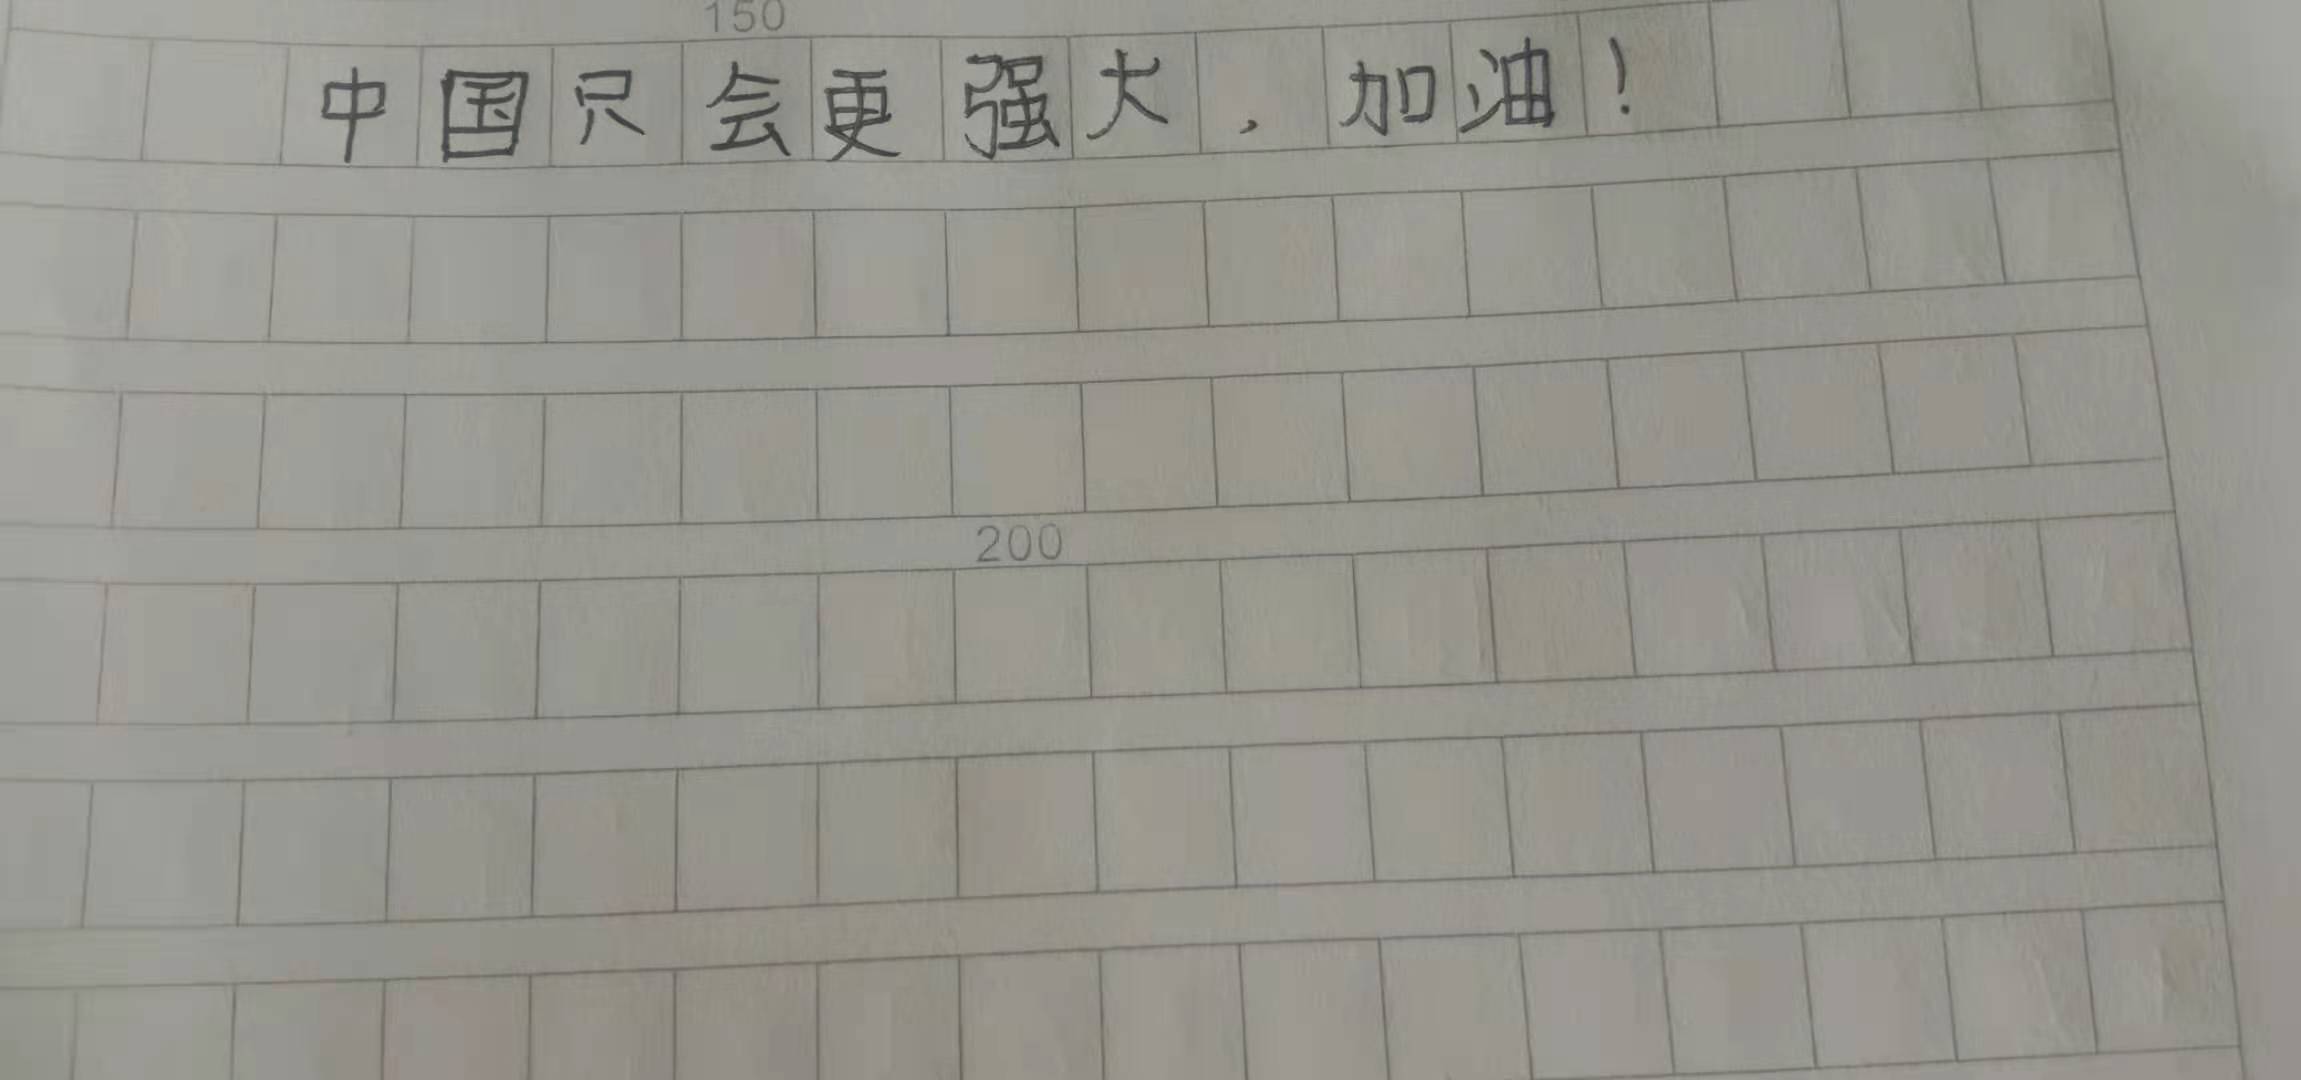 150
中国只会更强大，加油！
200